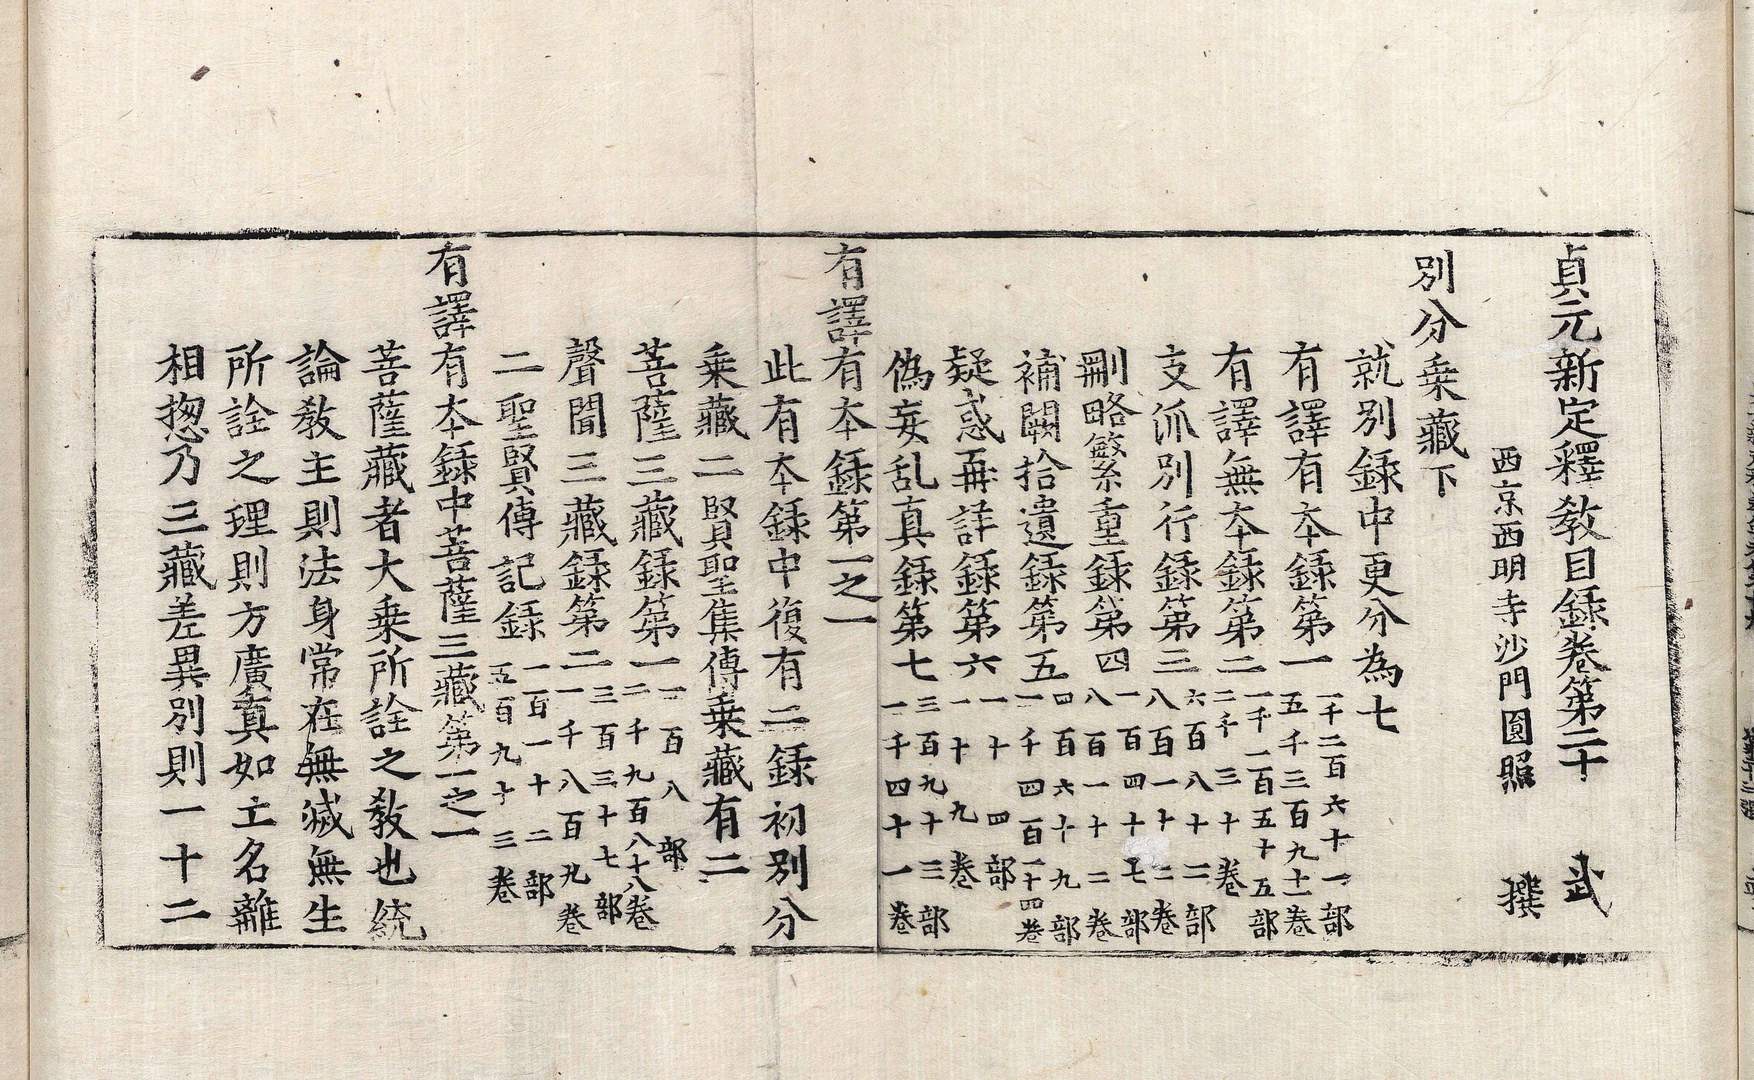 貞元新定釋教目録卷第二十 武
西京西明寺沙門圓照 撰
別分乗藏下
就別録中更分為七
有譯有本録第一 一千二百六十一部 五千三百九十一卷
有譯無本録第二 一千一百五十五部 二千三十卷
支派別行録第三 六百八十二部 八百一十二卷
刪略繁重録第四 一百四十七部 八百一十二卷
補闕拾遺録第五 四百六十九部 一千四百一十四卷
疑惑再詳録第六 一十四部 一十九卷
偽妄乱真録第七 三百九十三部 一千四十一卷
有譯有本録第一之一
此有本録中復有二録初別分
乗藏二賢聖集傳乗藏有二
菩薩三藏録第一 一百八部 二千九百八十八卷
聲聞三藏録第二 三百三十七部 一千八百九卷
二聖賢傳記録 一百一十二部 五百九十三卷
有譯有本録中菩薩三藏第一之一
菩薩藏者大乗所詮之教也統
論教主則法身常在無滅無生
所詮之理則方廣真如立名離
相惣乃三藏差異別則一十二